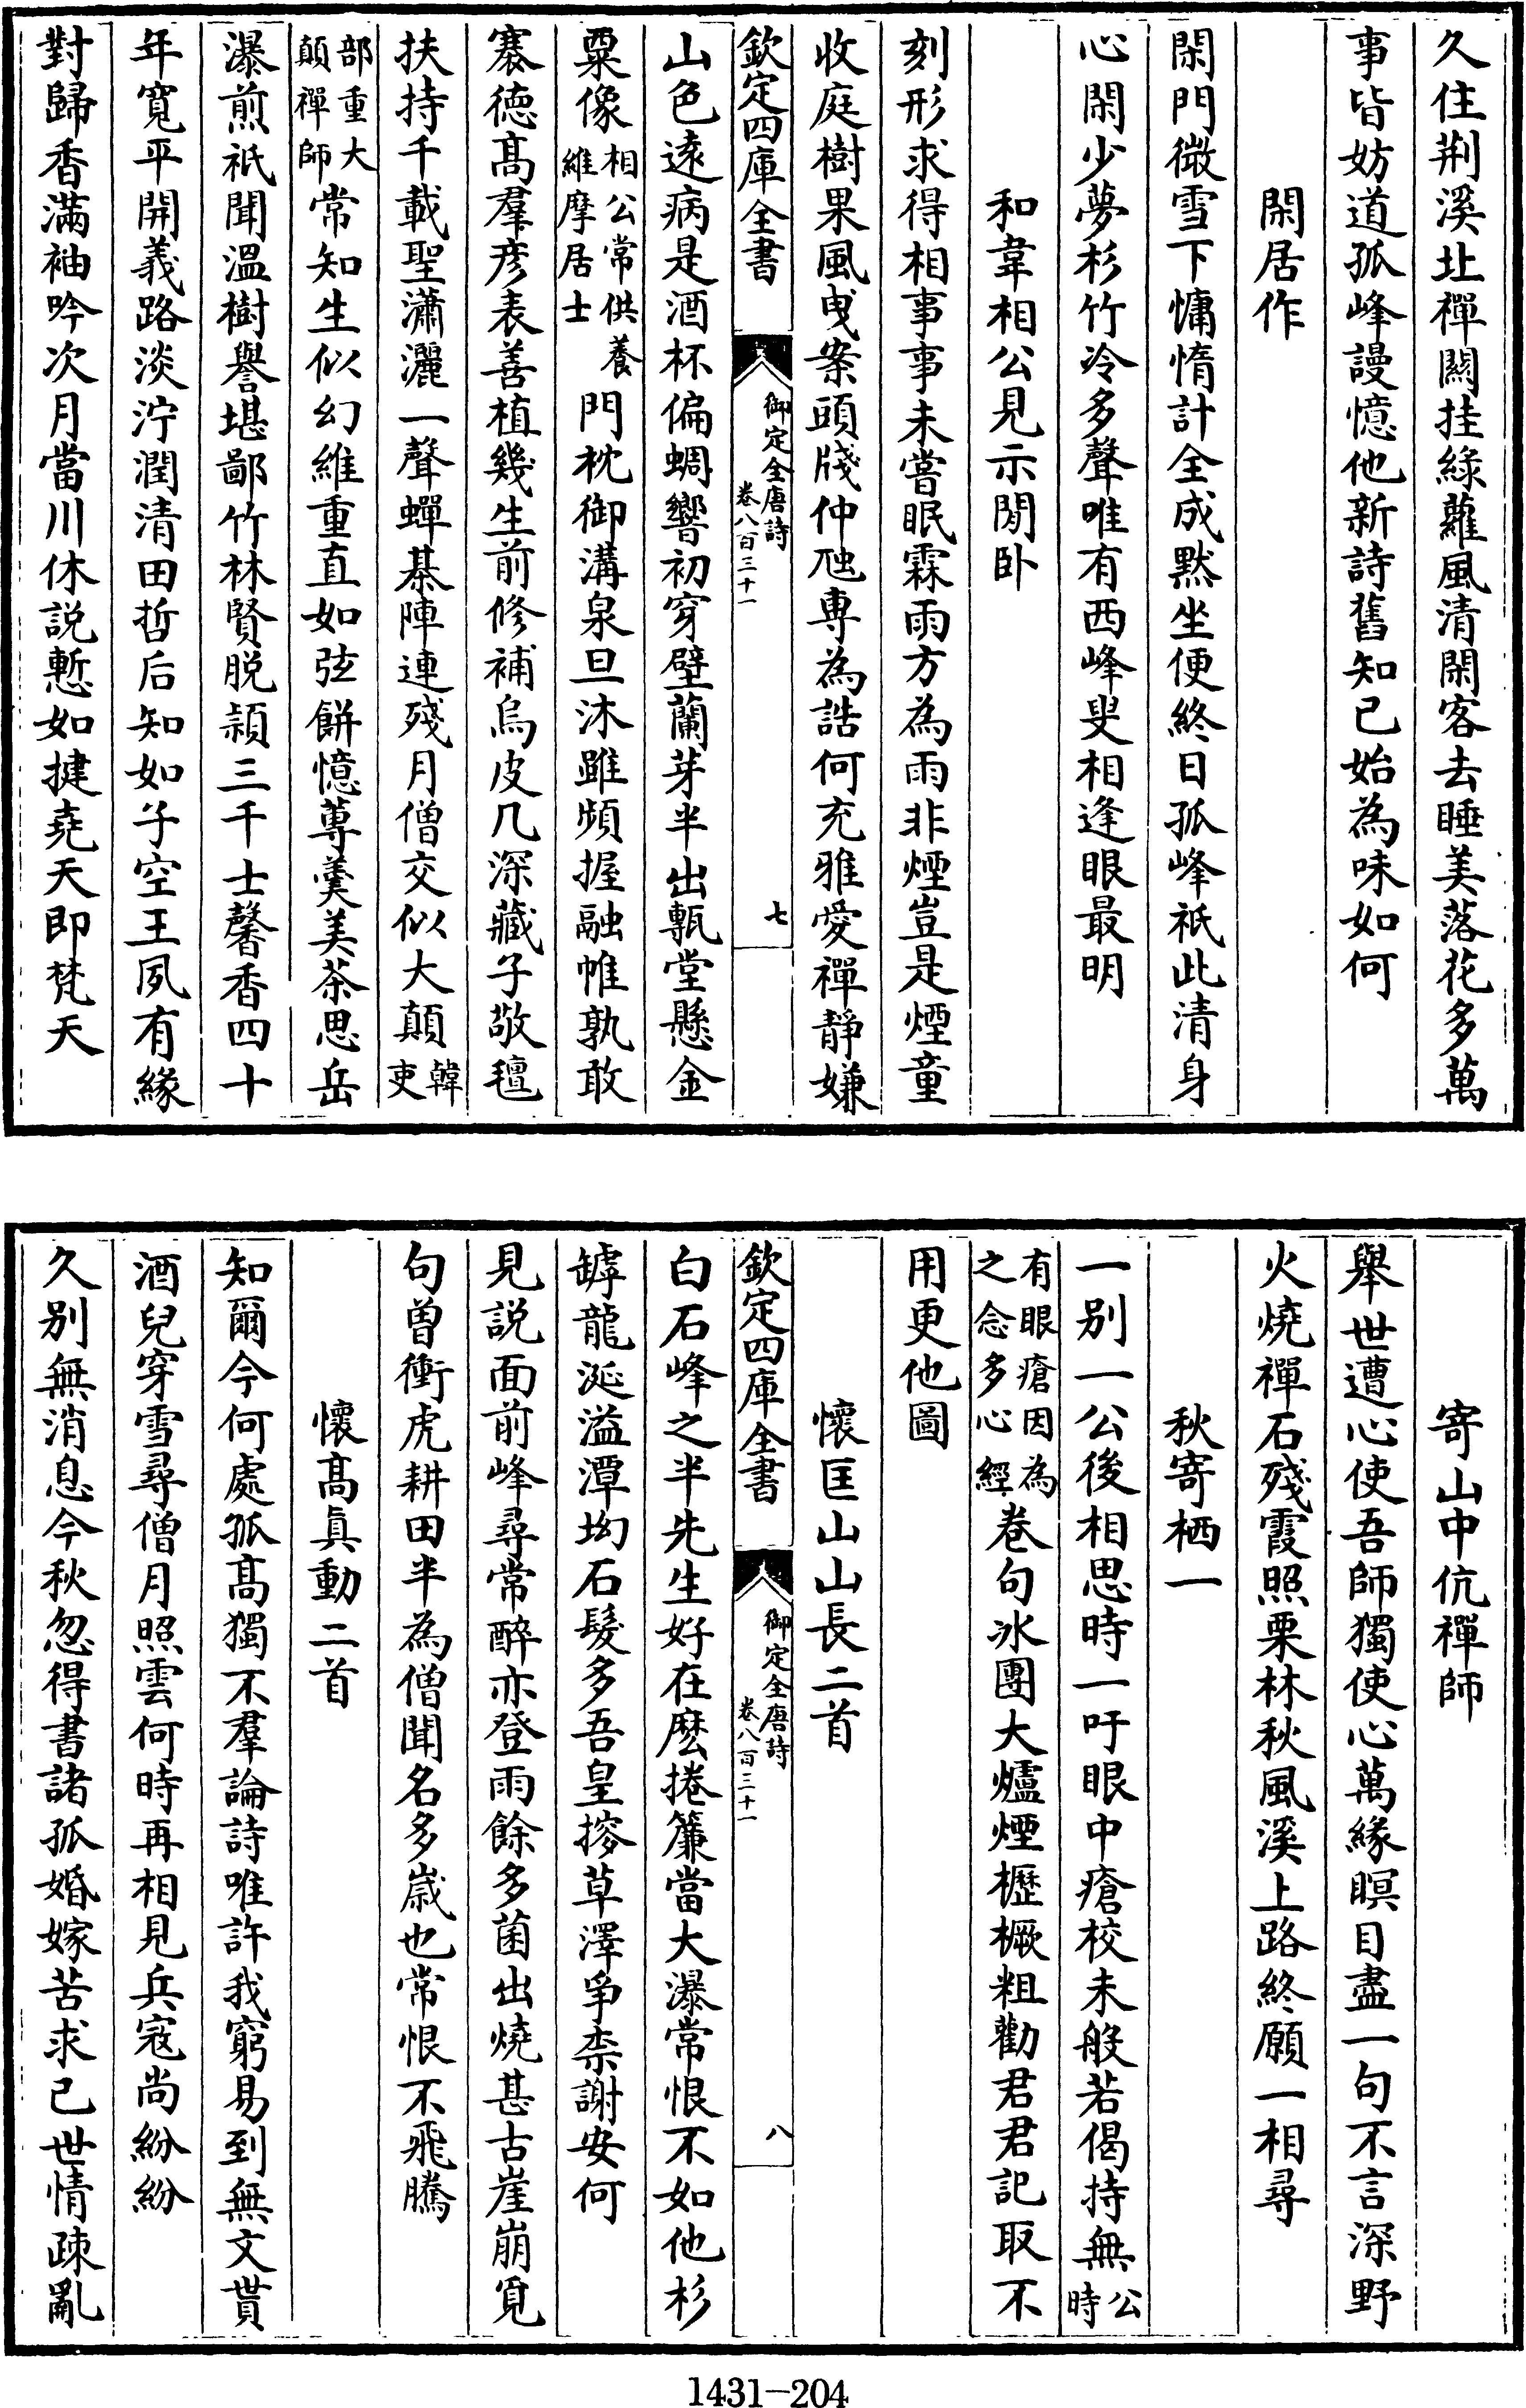 久住荆溪北禪關挂緑蘿風清閑客去睡美落花多萬
事皆妨道孤峰謾憶他新詩舊知己始為味如何
閑居作
閑門微雪下慵惰計全成黙坐便終日孤峰祇此清身
心閑少夢杉竹冷多聲唯有西峰叟相逢眼最明
和韋相公見示閒卧
刻形求得相事事未嘗眠霖雨方為雨非煙豈是煙童
收庭樹果風曵案頭牋仲虺専為誥何充雅愛禪靜嫌
欽定四庫全書
御定全唐詩
卷八百三十一
七
山色逺病是酒杯偏蜩響初穿壁蘭芽半出甎堂懸金
粟像相公常供養維摩居士門枕御溝泉旦沐雖頻握融帷孰敢
褰徳髙羣彦表善植幾生前修補烏皮几深藏子敬氊
扶持千載聖瀟灑一聲蟬棊陣連殘月僧交似大顛韓吏
部重大顛禪師常知生似幻維重直如弦餅憶蓴羮美茶思岳
瀑煎祇聞温樹譽堪鄙竹林賢脱頴三千士馨香四十
年寛平開義路淡泞潤清田哲后知如子空王夙有緣
對歸香滿袖吟次月當川休説慙如揵堯天即梵天
寄山中伉禪師
舉世遭心使吾師獨使心萬緣瞑目盡一句不言深野
火燒禪石殘霞照栗林秋風溪上路終願一相尋
秋寄栖一
一别一公後相思時一吁眼中瘡校未般若偈持無公時
有眼瘡因為之念多心經卷句氷團大爐煙櫪橛粗勸君君記取不
用更他圖
懷匡山山長二首
欽定四庫全書
御定全唐詩
卷八百三十一
八
白石峰之半先生好在麽捲簾當大瀑常恨不如他杉
罅龍涎溢潭坳石髮多吾皇搜草澤爭柰謝安何
見説面前峰尋常醉亦登雨餘多菌出燒甚古崖崩覓
句曽衝虎耕田半為僧聞名多歳也常恨不飛騰
懷髙真動二首
知爾今何處孤髙獨不羣論詩唯許我窮易到無文貰
酒兒穿雪尋僧月照雲何時再相見兵寇尚紛紛
久别無消息今秋忽得書諸孤婚嫁苦求己世情疎亂
1431-204